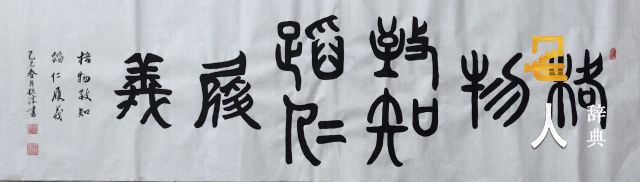 格物致知蹈仁履義
格物致知
蹈仁履义
乙巳春月
人
辞典